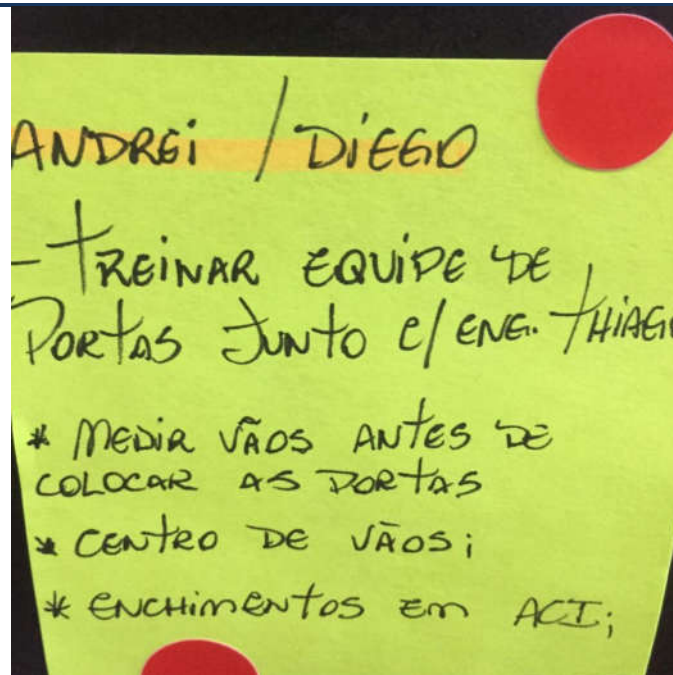 ANDREI / DIEGO
- TREINAR EQUIPE DE
PORTAS JUNTO C/ ENG. THIAGO
* MEDIR VÃOS ANTES DE
COLOCAR AS PORTAS
* CENTRO DE VÃOS;
* ENCHIMENTOS EM ACI;